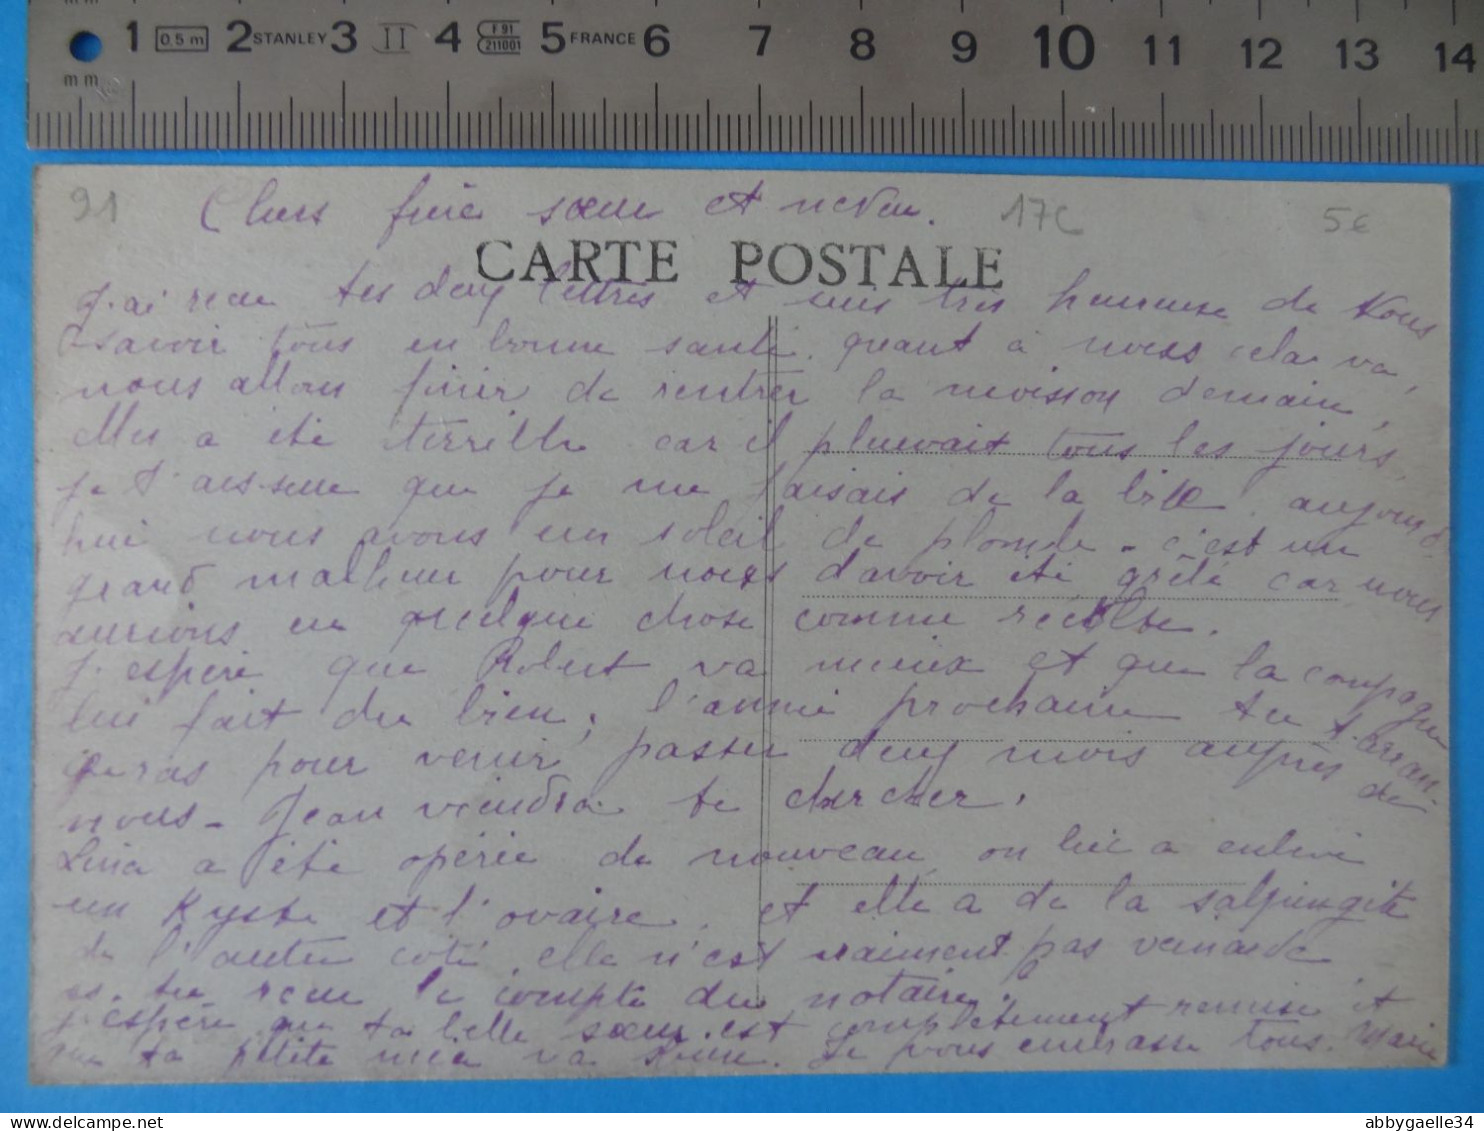 mm
1 0.5 m 2 STANLEY 3 II 4 F 91 211001 5 FRANCE 6 7 8 9 10 11 12 13 14
mm
91 Chers frère sœur et neveu. 17C 5€
CARTE POSTALE
J'ai recu tes deux lettres et suis très heureuse de vous
savoir tous en bonne santé. quant à nous cela va,
nous allons finir de rentrer la moisson demain,
elles a été terrible car il pleuvait tous les jours,
je t'assure que je me faisais de la bile. aujourd'
hui nous avons un soleil de plomb. c'est un
grand malheur pour nous d'avoir été grêlé car nous
aurions eu quelque chose comme récolte.
J'espère que Robert va mieux et que la campagne
lui fait du bien, l'année prochaine tu t'arran-
geras pour venir passer deux mois auprès de
nous - Jean viendra te chercher.
a été opérée de nouveau, on lui a enlevé
un Kyste et l'ovaire, et elle a de la salpingite
de l'autre coté, elle n'est vraiment pas
as-tu recu le compte du notaire,
J'espère que ta belle sœur est complètement remise et
que ta petite nièce va bien. Je vous embrasse tous. Marie
abbygaelle34